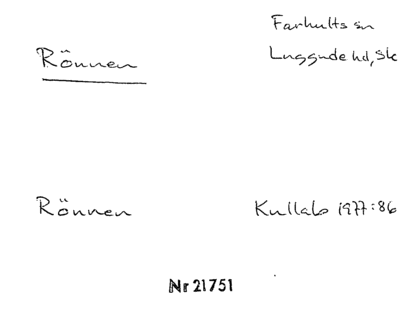 Rönnen
Farhults sn
Luggude hd, Sk
Rönnen
Kullabo 1977:86
Nr 21751